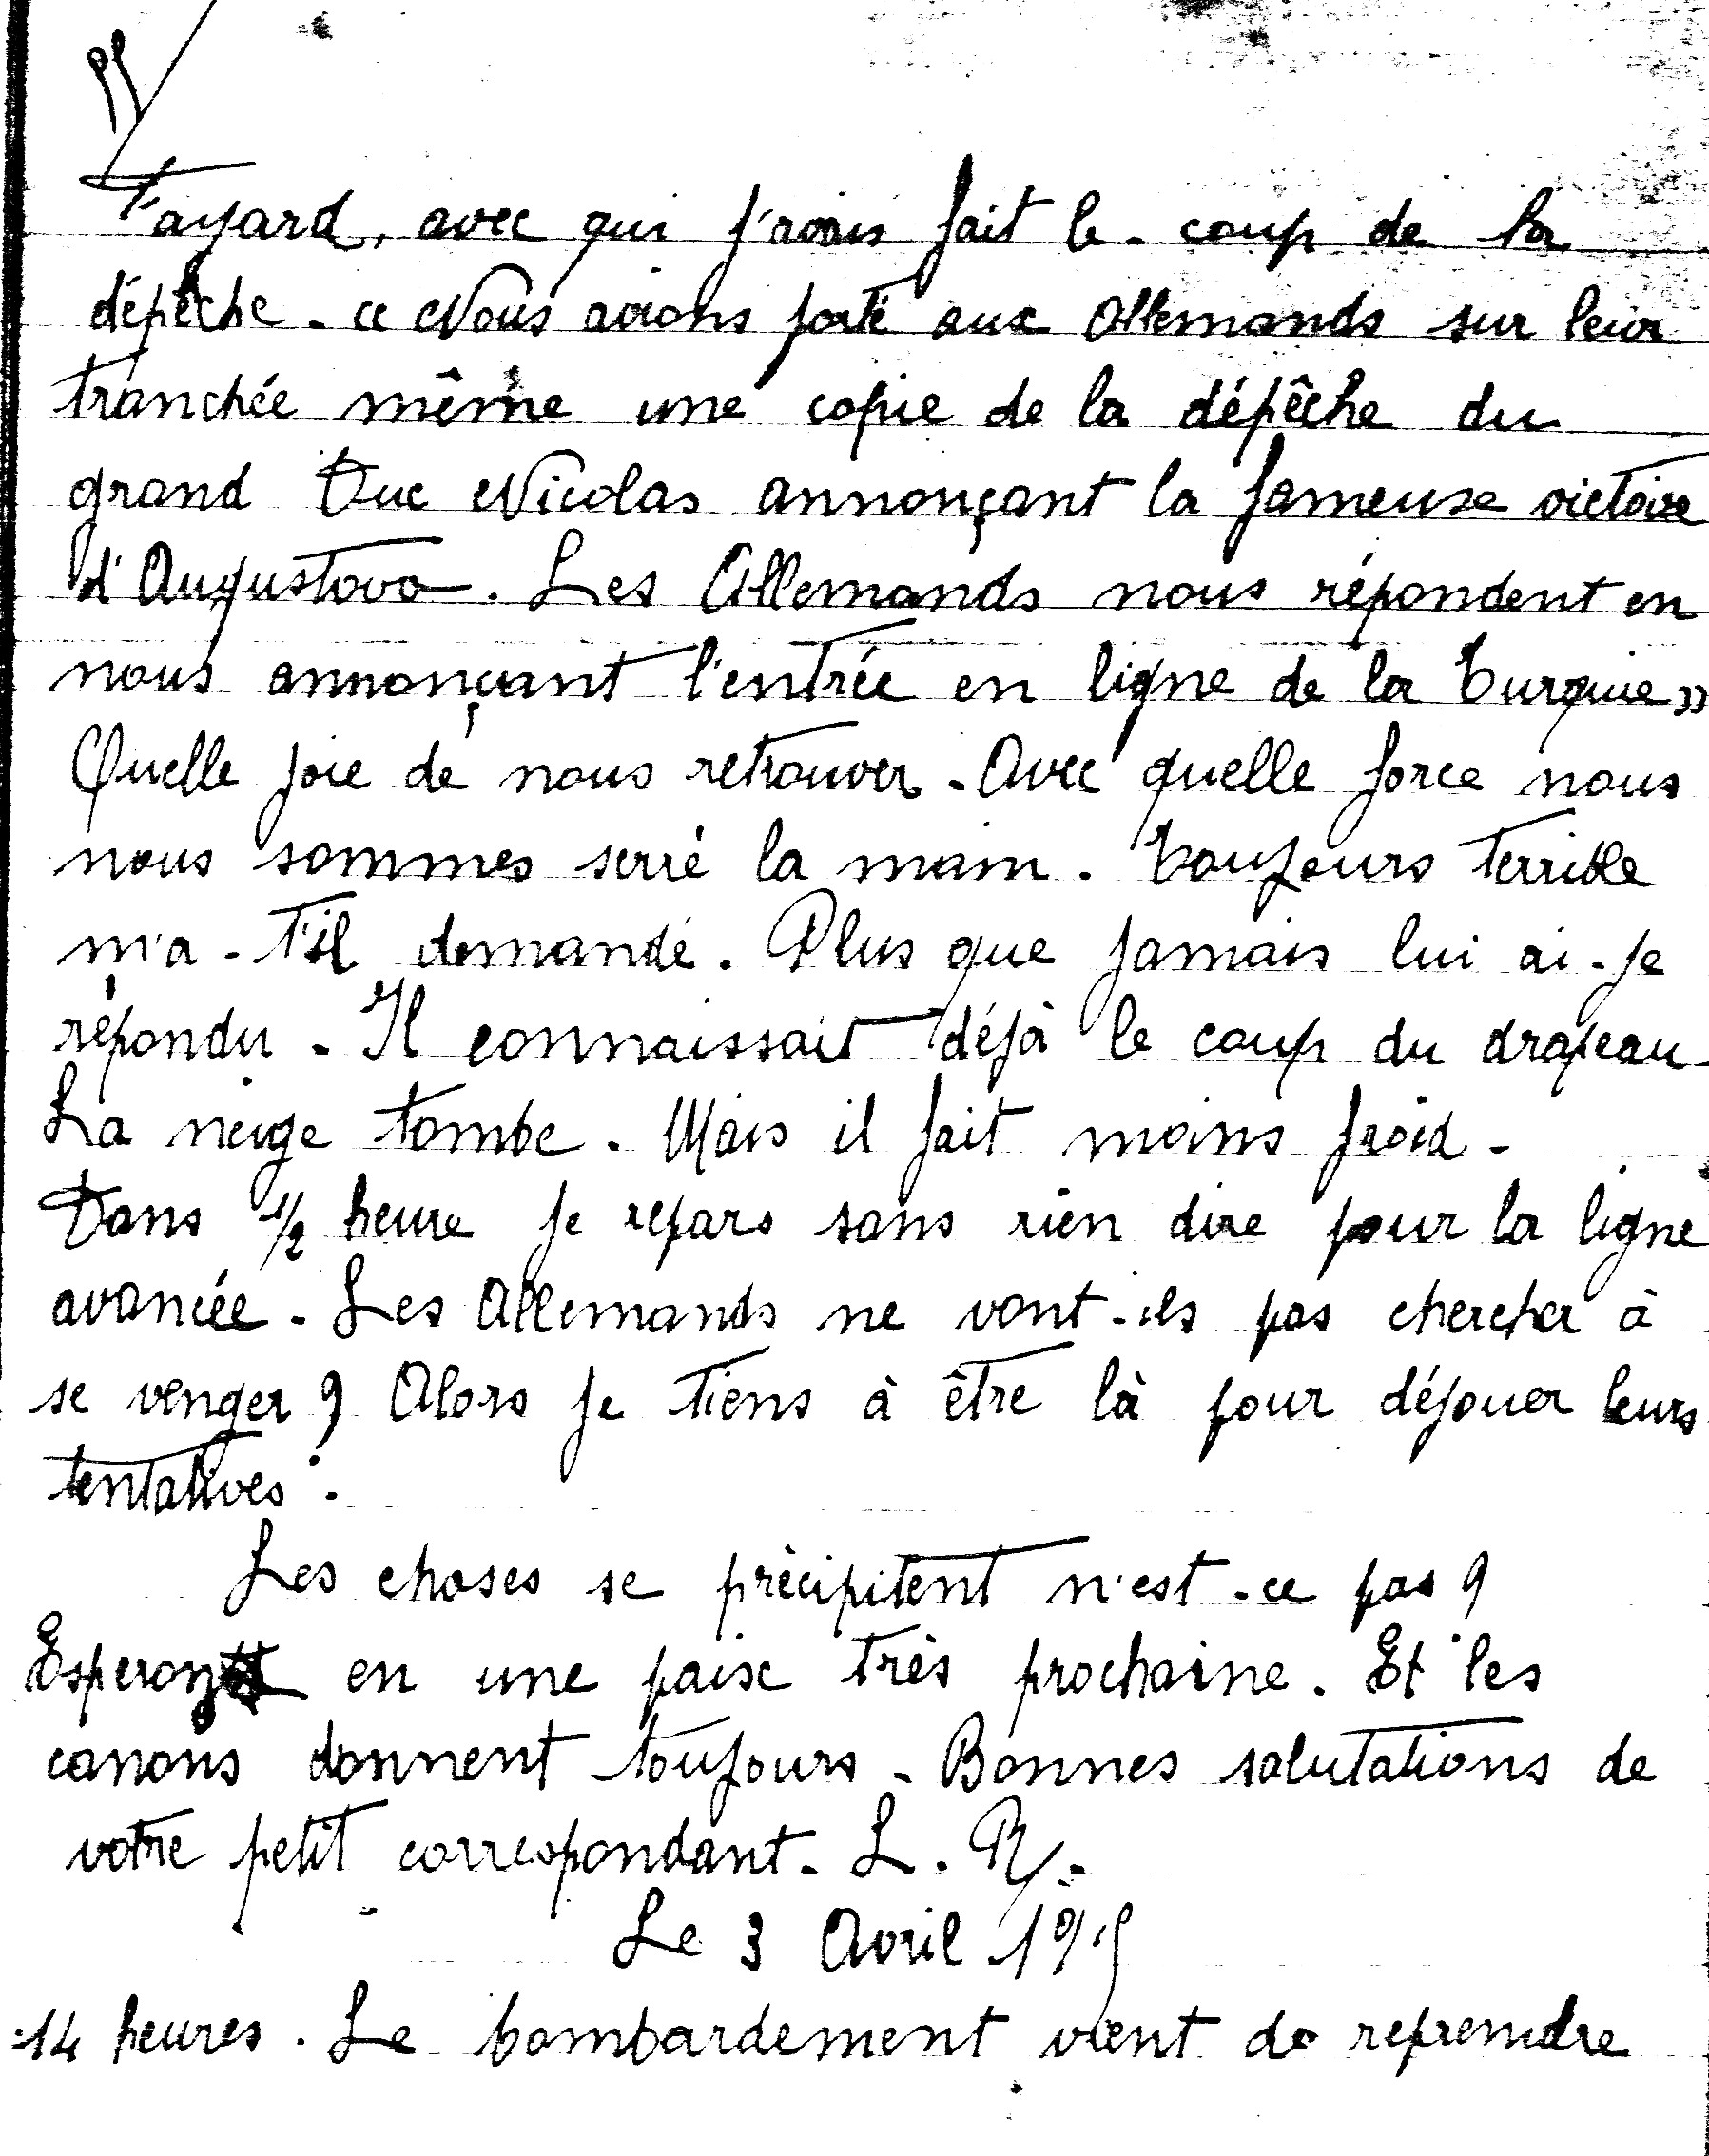 Fayard, avec qui j'avais fait le coup de la
dépêche - « Nous avions porté aux Allemands sur leur
tranchée même une copie de la dépêche du
grand Duc Nicolas annonçant la fameuse victoire
d'Augustovo. Les Allemands nous répondent en
nous annonçant l'entrée en ligne de la Turquie »
Quelle joie de nous retrouver. Avec quelle force nous
nous sommes serré la main. Toujours terrible
m'a-t'il demandé. Plus que jamais lui ai-je
répondu - Il connaissait déjà le coup du drapeau
La neige tombe. Mais il fait moins froid -
Dans 1/2 heure je repars sans rien dire pour la ligne
avancée - Les Allemands ne vont-ils pas chercher à
se venger ? Alors je tiens à être là pour déjouer leurs
tentatives.
Les choses se précipitent n'est-ce pas ?
Esperons en une paix très prochaine. Et les
canons donnent toujours - Bonnes salutations de
votre petit correspondant - L. R.
Le 3 Avril 1915
14 heures. Le bombardement vient de reprendre